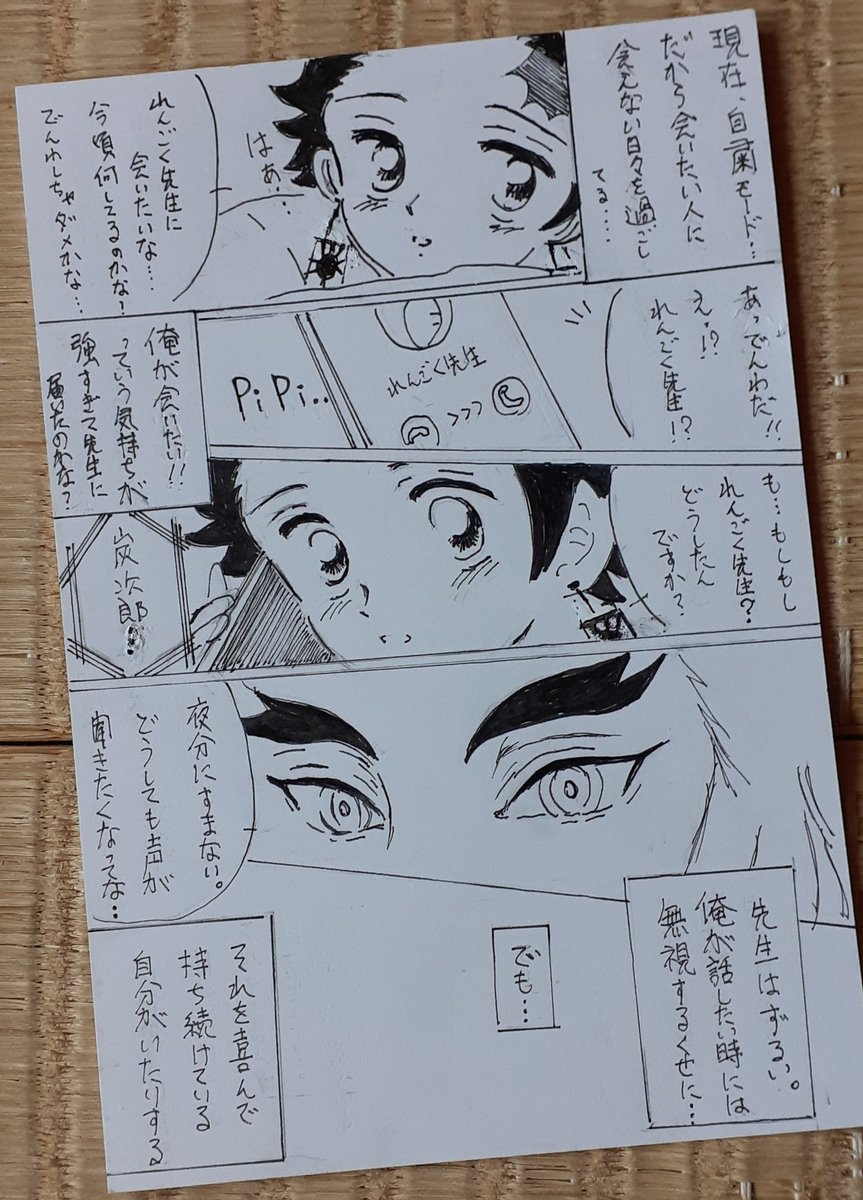 現在、自粛モード…
だから会いたい人に
会えない日々を過ごし
てる‥‥
はぁ‥
れんごく先生に
会いたいな‥‥
今頃何してるのかな?
でんわしちゃダメかな…
あっでんわだ!!
え!?
れんごく先生!?
れんごく先生
>>>
PiPi..
俺が会いたい!!
っていう気持ちが
強すぎて先生に
届いたのかな?
も…もしもし
れんごく先生?
どうしたん
ですか?
炭次郎‥
夜分にすまない。
どうしても声が
聞きたくなってな‥
先生はずるい。
俺が話したい時には
無視するくせに…
でも…
それを喜んで
持ち続けている
自分がいたりする